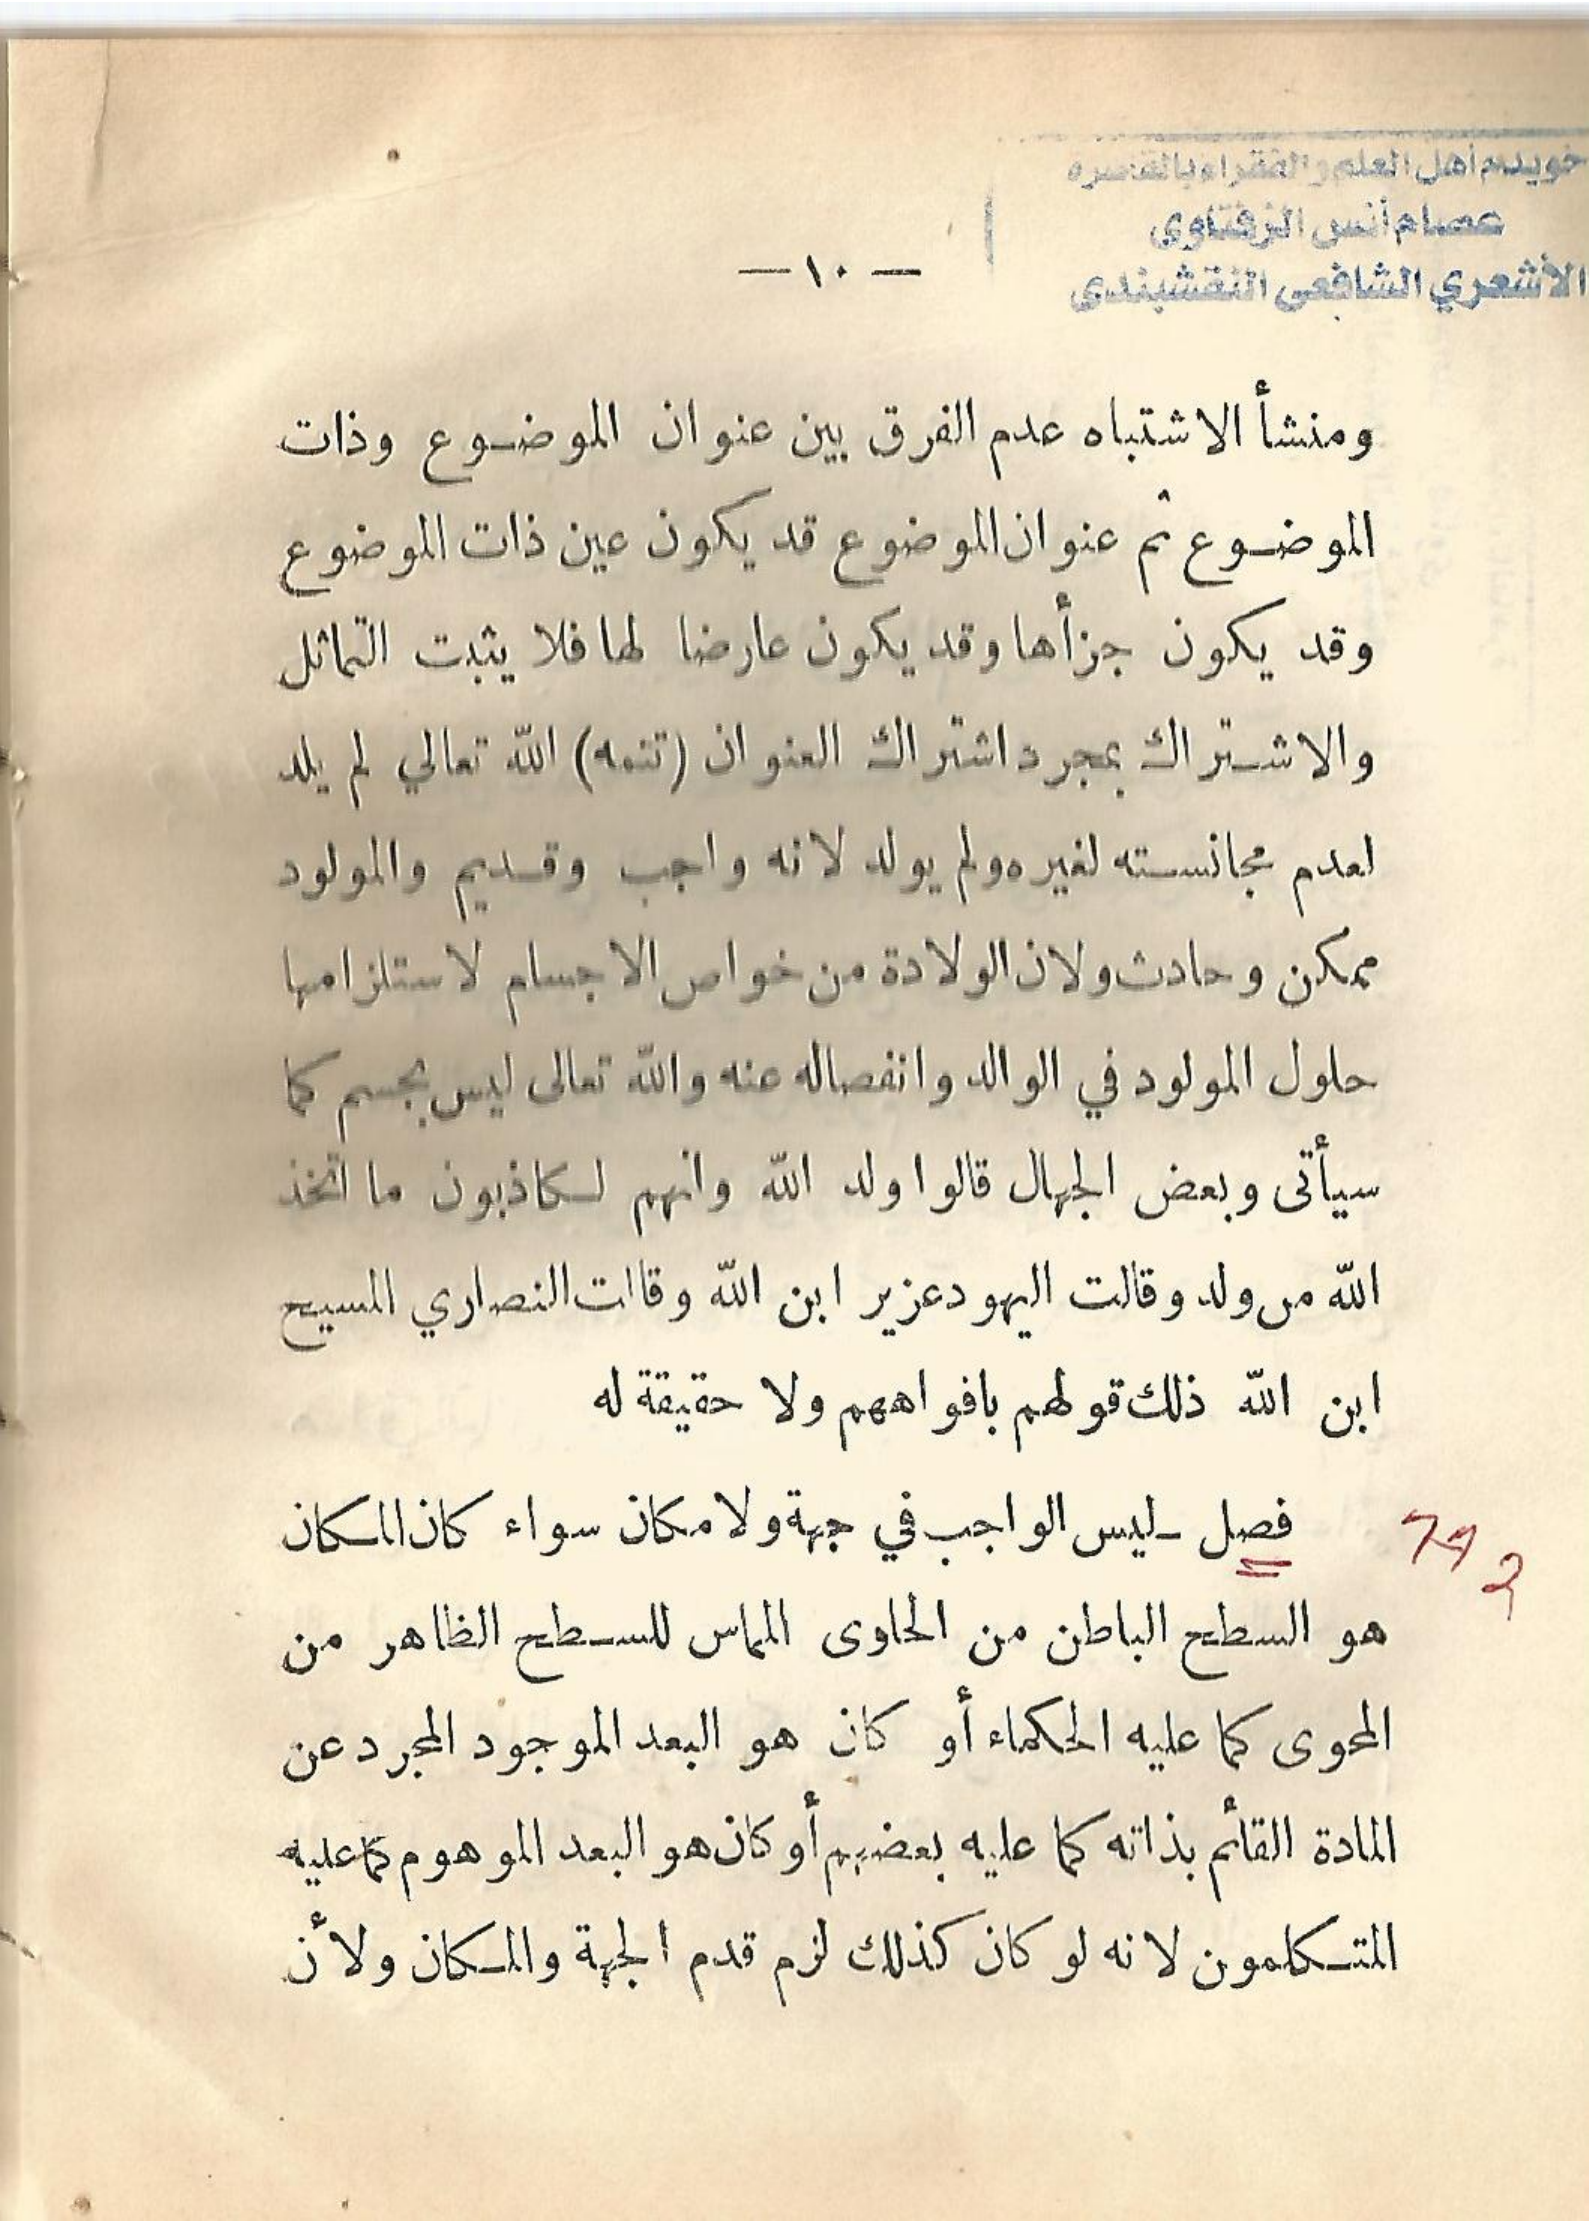 خويدم أهل العلم والفقراء بالقاهره
عصام أنس الزفتاوى
الأشعري الشافعى النقشبندى
— ١٠ —
ومنشأ الاشتباه عدم الفرق بين عنوان الموضوع وذات
الموضوع ثم عنوان الموضوع قد يكون عين ذات الموضوع
وقد يكون جزأها وقد يكون عارضا لها فلا يثبت التماثل
والاشتراك بمجرد اشتراك العنوان (تتمه) الله تعالي لم يلد
لعدم مجانسته لغيره ولم يولد لانه واجب وقديم والمولود
ممكن وحادث ولان الولادة من خواص الاجسام لاستلزامها
حلول المولود في الوالد وانفصاله عنه والله تعالى ليس بجسم كما
سيأتى وبعض الجهال قالوا ولد الله وانهم لكاذبون ما اتخذ
الله من ولد وقالت اليهود عزير ابن الله وقالت النصاري المسيح
ابن الله ذلك قولهم بافواههم ولا حقيقة له
فصل ـ ليس الواجب في جهة ولا مكان سواء كان المكان
هو السطح الباطن من الحاوى المماس للسطح الظاهر من
المحوى كما عليه الحكماء أو كان هو البعد الموجود المجرد عن
المادة القائم بذاته كما عليه بعضهم أو كان هو البعد الموهوم كما عليه
المتكلمون لانه لو كان كذلك لزم قدم الجهة والمكان ولأن